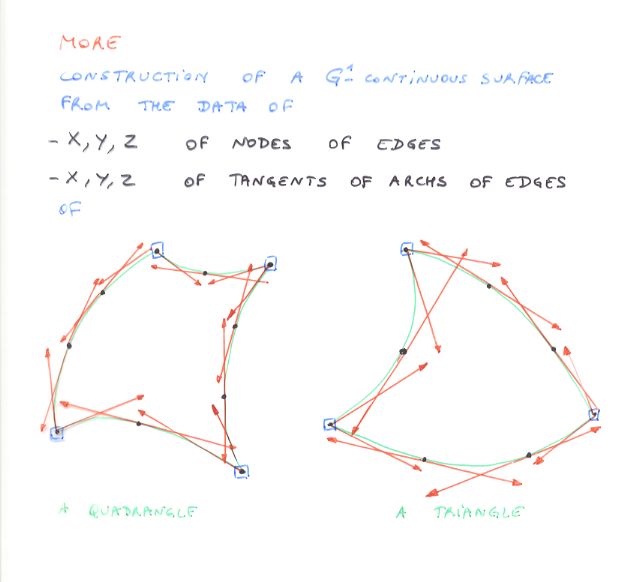 MORE
CONSTRUCTION OF A G1 CONTINUOUS SURFACE
FROM THE DATA OF
- X, Y, Z OF NODES OF EDGES
- X, Y, Z OF TANGENTS OF ARCHS OF EDGES
OF
A QUADRANGLE
A TRIANGLE